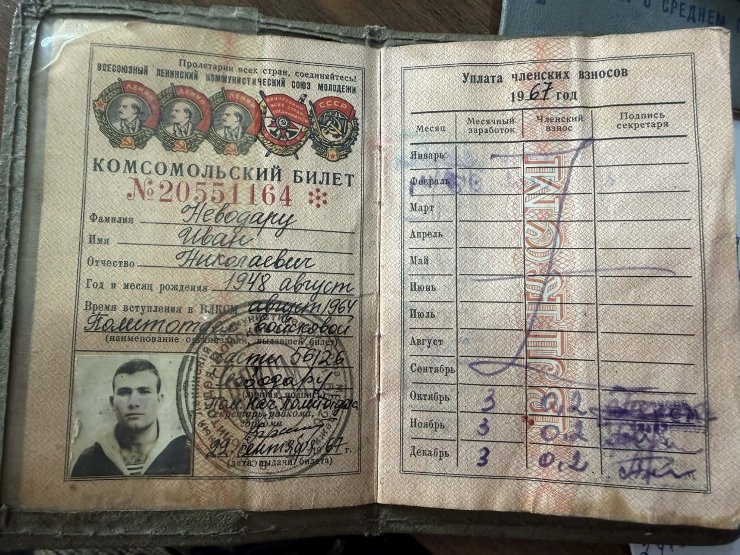 Пролетарии всех стран, соединяйтесь!
ВСЕСОЮЗНЫЙ ЛЕНИНСКИЙ КОММУНИСТИЧЕСКИЙ СОЮЗ МОЛОДЕЖИ
КОМСОМОЛЬСКИЙ БИЛЕТ
№ 20551164
Фамилия Неводару
Имя Иван
Отчество Николаевич
Год и месяц рождения 1948 август
Время вступления в ВЛКСМ август 1964
Политотдел войсковой
(наименование организации, выдавшей билет)
части 56126
Неводару
(личная подпись)
Пом. Нач. политотдела
22 сентября 1967 г.
(дата выдачи билета)
Уплата членских взносов
1967 год
Месяц Месячный заработок Членский взнос Подпись секретаря
Январь
Февраль
Март
Апрель
Май
Июнь
Июль
Август
Сентябрь
Октябрь 3 0,2
Ноябрь 3 0,2
Декабрь 3 0,2
ВЛКСМ
О СРЕДНЕМ